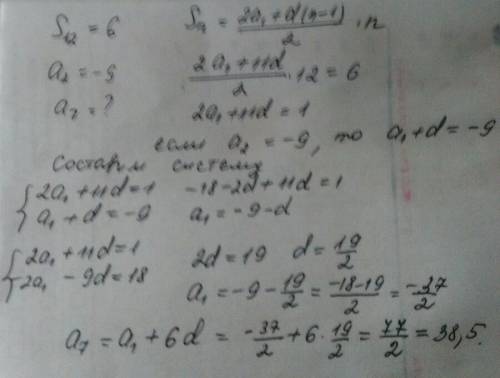 S₁₂ = 6 Sₙ = (2a₁ + d(n-1))/2 · n
a₂ = -9 (2a₁ + 11d)/2 · 12 = 6
a₇ = ? 2a₁ + 11d = 1
если a₂ = -9, то a₁ + d = -9
Составим систему
{ 2a₁ + 11d = 1 -18 - 2d + 11d = 1
a₁ + d = -9 a₁ = -9 - d
{ 2a₁ + 11d = 1 2d = 19 d = 19/2
2a₁ - 9d = 18 a₁ = -9 - 19/2 = (-18-19)/2 = -37/2
a₇ = a₁ + 6d = -37/2 + 6 · 19/2 = 77/2 = 38,5.